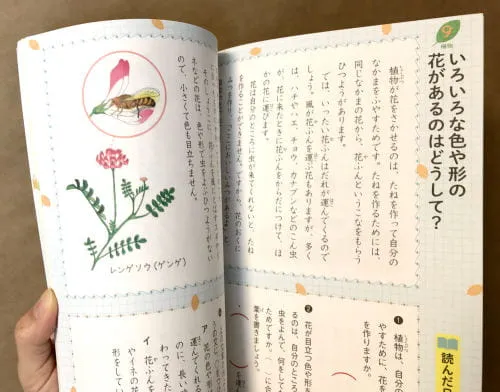 9
植物
いろいろな色や形の
花があるのはどうして?
植物が花をさかせるのは、たねを作って自分の
なかまをふやすためです。たねを作るためには、
同じなかまの花から、花ふんというこなをもらう
ひつようがあります。
では、いったい花ふんはだれが運んでくるので
しょう。風が花ふんを運ぶ花もありますが、多く
は、ハチやハエ、チョウ、カナブンなどのこん虫
が、花に来たときに花ふんをからだにつけて、ほ
かの花に運びます。
花は自分のところに虫が来てくれないと、たね
を作ることができません。ですから、花のおくに
みつを作り、「ここにおいしいみつがあるよ」と
読んだ日
❶ 植物は、自分の
やすために、花を
を作りますか。
❷ 花が目立つ色や形
るのは、自分のところ
虫をよんで、何をして
ためですか。( )に合
葉を書きましょう。
ネなどの花は、色や形で虫をよぶひつようがない
ので、小さくて色も目立ちません。
レンゲソウ(ゲンゲ)
ア 花の色や形
運んで
のに、長い
わってきた
イ 花ふんを
やイネの花
形をしてい